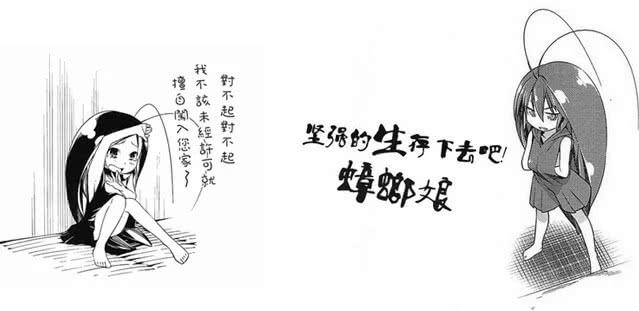 對不起對不起
我不該未經許可就
擅自闖入您家~
坚强的生存下去吧!
蟑螂娘